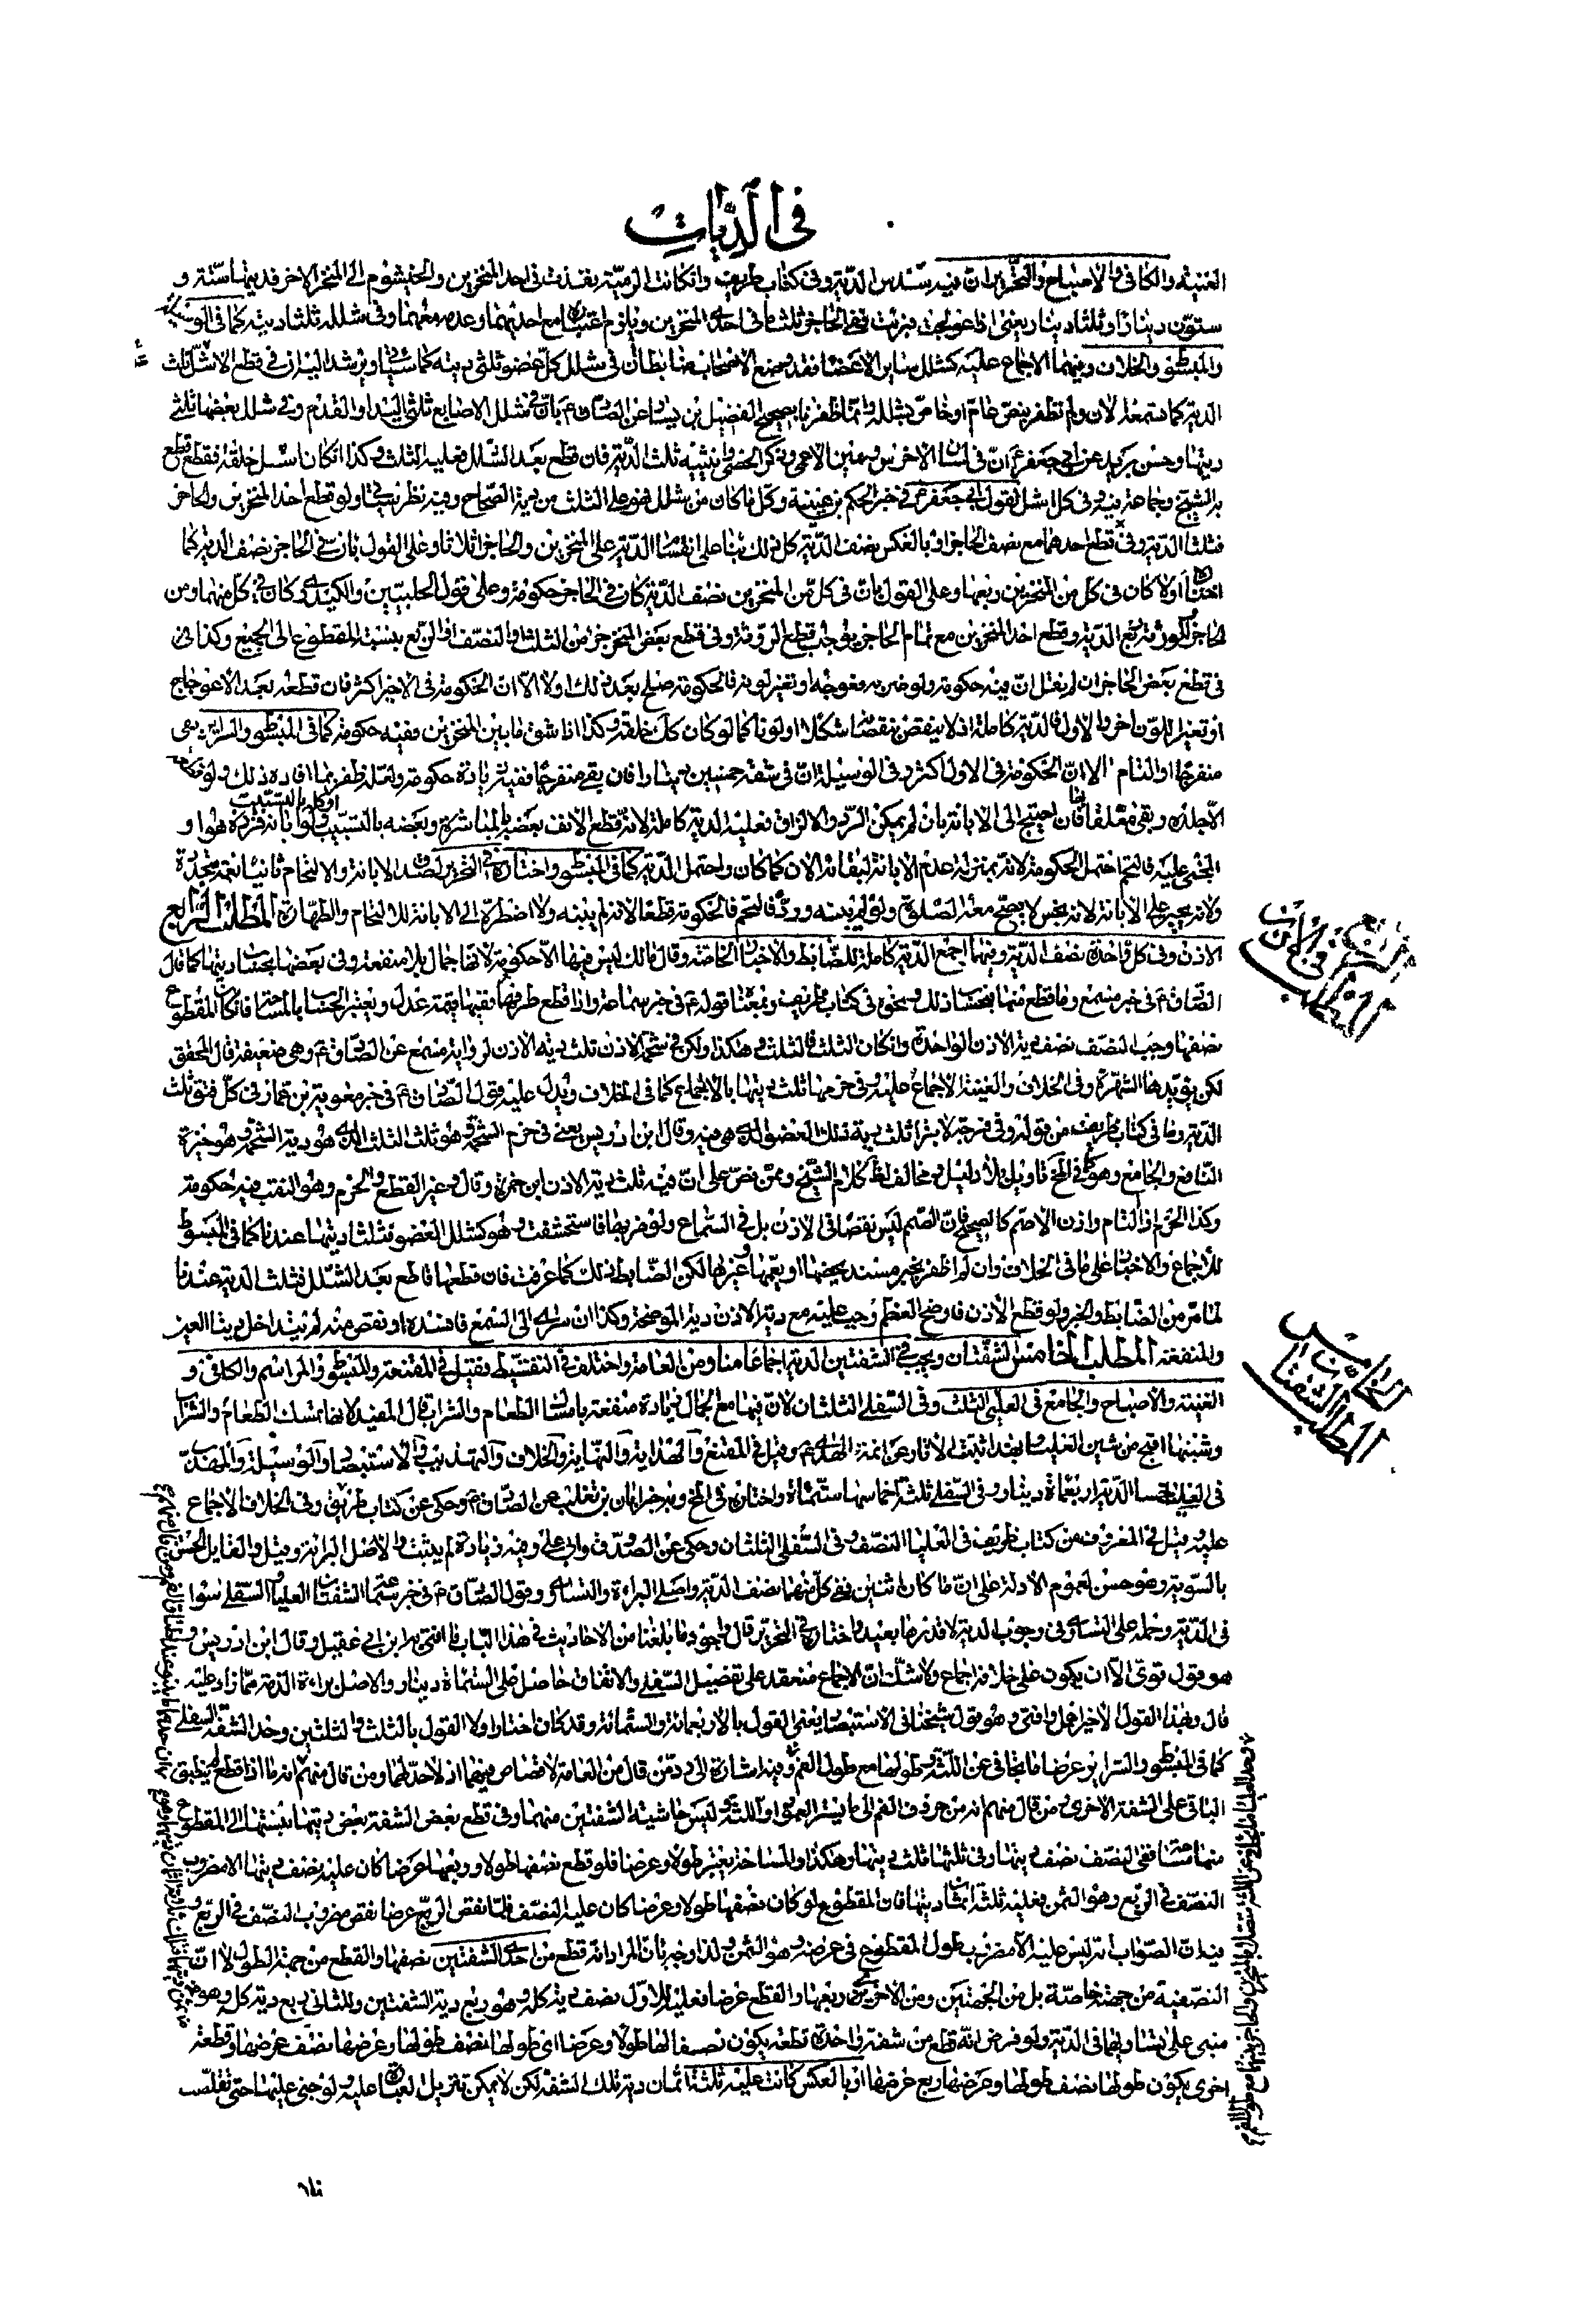 في الديات
الغنية والكافي والاصباح والتحرير ان فيه سدس الدية وفي كتاب ظريف وان كانت الرمية نفذت في احد المنخرين والخيشوم الى المنخر الاخر فديتها ستة و
ستون دينارا وثلثا دينار يعني اذا عولجت فبرئت ففي الحاجز ثلثها في احدى المنخرين ويلزم اعتباره مع احديهما وعدمه معهما وفي شلله ثلثا ديته كما في الوسيلة
والمبسوط والخلاف وفيهما الاجماع عليه كشلل ساير الاعضاء فقد وضع الاصحاب ضابطا ان في شلل كل عضو ثلثي ديته كما سيأتي ويرشد اليه ان في قطع الاشل ثلث
الدية كما ستسمعه الان ولم نظفر بنص عام او خاص بشلله وانما ظفرنا بصحيح الفضيل بن يسار عن الصادق ع بان في شلل الاصابع ثلثي اليد او القدم وفي شلل بعضها ثلثي
ديتها وحسن بريد عن ابي جعفر ع ان في لسان الاخرس وعين الاعمى وذكر الخصي وانثييه ثلث الدية فان قطع بعد الشلل فعليه الثلث وكذا ان كان اشل خلقة فقطع قطع
به الشيخ وجماعة فيه وفي كل اشل لقول ابي جعفر ع في خبر الحكم بن عيينة وكل ما كان من شلل فهو على الثلث من دية الصحاح وفيه نظر سيأتي ولو قطع احد المنخرين والحاجز
فثلثا الدية وفي قطع احدهما مع نصف الحاجز او بالعكس نصف الدية كل ذلك بناء على انقسام الدية على المنخرين والحاجز اثلاثا وعلى القول بان في الحاجز نصف الدية كما
اختاره اولا كان في كل من المنخرين ربعها وعلى القول بان في كل من المنخرين نصف الدية كان في الحاجز حكومة وعلى قول الحلبيين والكيدري كان في كل منهما ومن
الحاجز والروثة ربع الدية وقطع احد المنخرين مع تمام الحاجز يوجب قطع الروثة وفي قطع بعض المنخر جزء من الثلث او النصف او الربع بنسبة المقطوع الى الجميع وكذا في
في قطع بعض الحاجز ان لم نقل ان فيه حكومة ولو ضربه فعوجه او تغير لونه فالحكومة صلح بعد ذلك اولا الا ان الحكومة في الاخير اكثر فان قطعه بعد الاعوجاج
او تغير اللون اخر والاول فالدية كاملة اذ لا ينقص بنقصها شكلا او لونا كما لو كان كذلك خلقة وكذا اذا شق ما بين المنخرين ففيه حكومة كما في المبسوط والسرائر بقي
منفرجا او التام الا ان الحكومة في الاول اكثر وفي الوسيلة ان في شقه خمسين دينارا فان بقي منفرجا ففيه زيادة حكومة ولعله ظفر بما افاده ذلك ولو قطعه
الا جلده وبقي معلقا بها فان احتيج الى الابانة بان لم يمكن الرد والالزاق فعليه الدية كاملة لانه قطع الانف بعضه بالمباشرة وبعضه بالتسبيب ولو ابانه فرده هو او
او كله بالتسبيب
المجني عليه فالتحم احتمل الحكومة لانه بمنزلة عدم الابانة لبقائه الان كما كان واحتمل الدية كما في المبسوط واختاره في التحرير لصدق الابانة والالتحام ثانيا نعمة متجددة
ولانه يجبر على الابانة لانه نجس لا يصح معه الصلوة ولو لم يبنه ورده فالتحم فالحكومة قطعا لانه لم يبنه ولا اضطره الى الابانة للالتحام والطهارة المطلب الرابع
الاذن وفي كل واحدة نصف الدية وفيهما اجمع الدية كاملة للضابط والاخبار الخاصة وقال مالك ليس فيها الا حكومة لانها جمال بلا منفعة وفي بعضها بحساب ديتها كما قال
الصادق ع في خبر مسمع وما قطع منها فبحساب ذلك ونحوه في كتاب ظريف وبمعناه قوله ع في خبر سماعة واذا قطع طرفها ففيها قيمة عدل ويعتبر الحساب بالمساحة فان كان المقطوع
نصفها وجب النصف نصف دية الاذن الواحدة وان كان الثلث فالثلث وهكذا ولكن في شحمة الاذن ثلث دية الاذن لرواية مسمع عن الصادق ع وهي ضعيفة قال المحقق
لكن يؤيدها الشهرة وفي الخلاف والغنية الاجماع عليه وفي خرمها ثلث ديتها بالاجماع كما في الخلاف ويدل عليه قول الصادق ع في خبر معوية بن عمار في كل فتق ثلث
الدية وما في كتاب ظريف من قوله وفي قرحة لا تبرأ ثلث دية ذلك العضو الذي هي فيه وقال ابن ادريس يعني في خرم الشحمة وهو ثلث الثلث الذي هو دية الشحمة وهو خيرة
النافع والجامع وهو كما في المخ تأويل بلا دليل ومخالف لظاهر كلام الشيخ وممن نص على ان فيه ثلث دية الاذن ابن حمزة وقال وغير القطع والخرم وهو النقب فيه حكومة
وكذا الخرم اذا التام واذن الاصم كالصحيح فان الصمم ليس نقصا في الاذن بل في السماع ولو ضربها فاستحشفت فهو كشلل العضو فثلثا ديتها عندنا كما في المبسوط
للاجماع والاخبار على ما في الخلاف وان لم اظفر بخبر مسند يخصها او يعمها وغيرها لكن الضابط ذلك كما عرفت فان قطعها قاطع بعد الشلل فثلث الدية عندنا
لما مر من الضابط والخبر ولو قطع الاذن فاوضح العظم وجب عليه مع دية الاذن دية الموضحة وكذا ان سرى الى السمع فافسده او نقص منه لم يتداخل ديتا العين
والمنفعة المطلب الخامس الشفتان ويجب في الشفتين الدية اجماعا منا ومن العامة واختلف في التقسيط فقيل في المقنعة والمبسوط والمراسم والكافي و
الغنية والاصباح والجامع في العليا الثلث وفي السفلى الثلثان لان فيها مع الجمال زيادة منفعة بامساك الطعام والشراب قال المفيد لانها تمسك الطعام والشراب
وشينها اقبح من شين العليا وبهذا ثبتت الاثار عن ائمة الهدى ع وقيل في المقنع والهداية والنهاية والخلاف والتهذيب والاستبصار والوسيلة والمهذب
في العليا خمسا الدية اربعمأة دينار وفي السفلى ثلثة اخماسها ستمأة واختاره في المخ وبه خبر ابان بن تغلب عن الصادق ع وحكى عن كتاب ظريف وفي الخلاف الاجماع
عليه وقيل في المعروف من كتاب ظريف في العليا النصف وفي السفلى الثلثان وحكى عن الصدوق وابي علي وفيه زيادة لم يثبت والاصل البرائة وقيل والقايل الحسن
بالسوية وهو حسن لعموم الادلة على ان ما كان اثنين ففي كل منهما نصف الدية واصلي البراءة والتساوي وقول الصادق ع في خبر سماعة الشفتان العليا والسفلى سواء
في الدية وحمله على التساوي في وجوب الدية لا قدرها بعيد واختاره في التحرير قال واجود ما بلغنا من الاحاديث في هذا الباب ما افتى به ابن ابي عقيل وقال ابن ادريس و
هو قول قوي الا ان يكون على خلافه اجماع ولا شك ان الاجماع منعقد على تفضيل السفلى والاتفاق حاصل على الستمأة دينار والاصل براءة الذمة مما زاد عليه
قال وبهذا القول الاخير اعمل وافتي وهو قول شيخنا في الاستبصار يعني القول بالاربعمائة والستمائة وقد كان اختار اولا القول بالثلث والثلثين وحد الشفة السفلى
كما في المبسوط والسراير عرضا ما تجافى عن اللثة وطولها مع طول الفم وفيه اشارة الى رد من قال من العامة لا قصاص فيهما اذ لا حد لهما ومن قال منهم انه ما اذا قطع لم ينطبق
الباقي على الشفة الاخرى ومن قال منهم انه من حرف الفم الى ما يستر العمور واللثة وليس حاشية الشفتين منهما وفي قطع بعض الشفة بعض ديتها بنسبتها الى المقطوع
منها مساحة ففي النصف نصف ديتها وفي ثلثها ثلث ديتها وهكذا والمساحة يعتبر طولا وعرضا فلو قطع نصفها طولا وربعها عرضا كان عليه نصف ديتها الا مضروب
النصف في الربع وهو الثمن فعليه ثلثة اثمان ديتها فان المقطوع لو كان نصفها طولا وعرضا كان عليه النصف فلما نقص الربع عرضا نقص مضروب النصف في الربع و
فيه ان الصواب انه ليس عليه الا مضروب طول المقطوع في عرضه وهو الثمن ولذا وجه بان المراد انه قطع من احدى الشفتين نصفها والقطع من جهة الطول لا ان
النصفية من جهة خاصة بل من الجهتين ومن الاخرى ربعها والقطع عرضا فعليه للاول نصف دية كله وهو ربع دية الشفتين وللثاني ربع دية كله وهو
مبني على تساويهما في الدية ولو فرض انه قطع من شفة واحدة قطعة يكون نصفا لها طولا وعرضا اي طولها نصف طولها وعرضها نصف عرضها وقطعة
اخرى يكون طولها نصف طولها وعرضها ربع عرضها او بالعكس كانت عليه ثلثة اثمان دية تلك الشفة لكن لا يمكن تنزيل العبارة عليه ولو جنى عليها حتى تقلصت
المطلب الرابع في الاذن
المطلب الخامس الشفتان